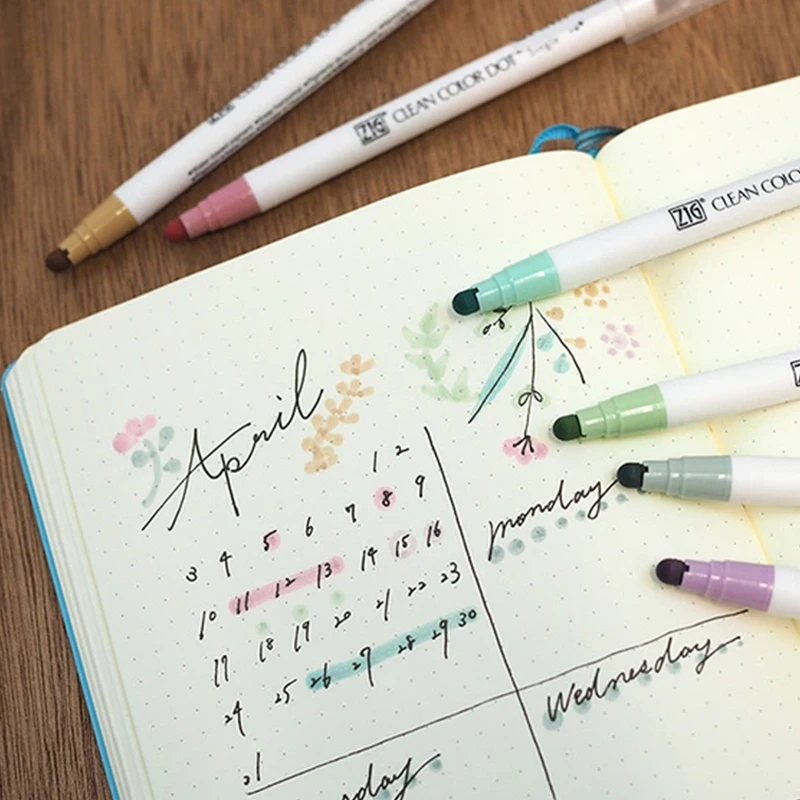 ZIG CLEAN COLOR DOT
ZIG CLEAN COLO
April
1 2
3 4 5 6 7 8 9
10 11 12 13 14 15 16
17 18 19 20 21 22 23
24 25 26 27 28 29 30
31
monday
Wednesday